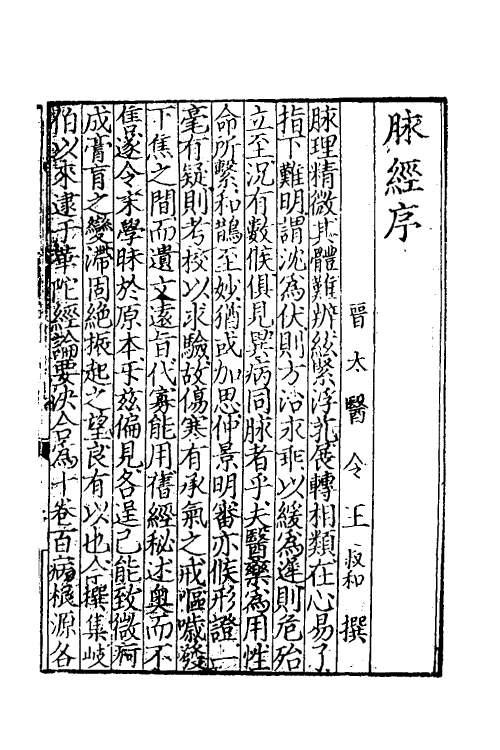 脉經序
晉太醫令王叔和撰
脉理精微其體難辨絃緊浮芤展轉相類在心易了
指下難明謂沈為伏則方治永乖以緩為遲則危殆
立至況有數候俱見異病同脉者乎夫醫藥為用性
命所繫和鵲至妙猶或加思仲景明審亦候形證一
毫有疑則考校以求驗故傷寒有承氣之戒嘔噦發
下焦之間而遺文遠旨代寡能用舊經秘述奧而不
售遂令末學昧於原本斥兹偏見各逞己能致微痾
成膏肓之變滯固絕振起之望良有以也今撰集岐
伯以來逮于華陀經論要决合為十卷百病根源各